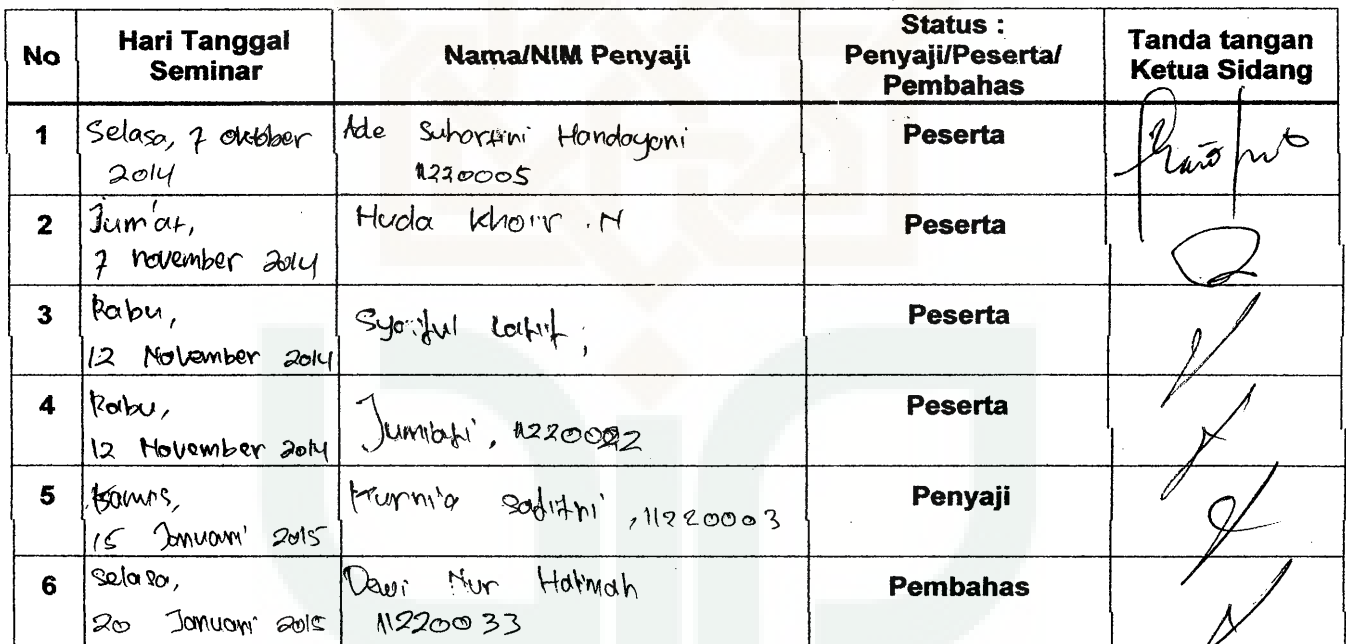 No
Hari Tanggal
Seminar
Nama/NIM Penyaji
Status :
Penyaji/Peserta/
Pembahas
Tanda tangan
Ketua Sidang
1
Selasa, 7 oktober
2014
Ade Suhartini Handayani
11220005
Peserta
2
Jum'at,
7 november 2014
Huda Khoir . N
Peserta
3
Rabu,
12 November 2014
Syaiful Latif,
Peserta
4
Rabu,
12 November 2014
Jumiati, 11220022
Peserta
5
Kamis,
15 Januari 2015
Kurnia , 11220003
Penyaji
6
Selasa,
20 Januari 2015
Dewi Nur Halimah
11220033
Pembahas